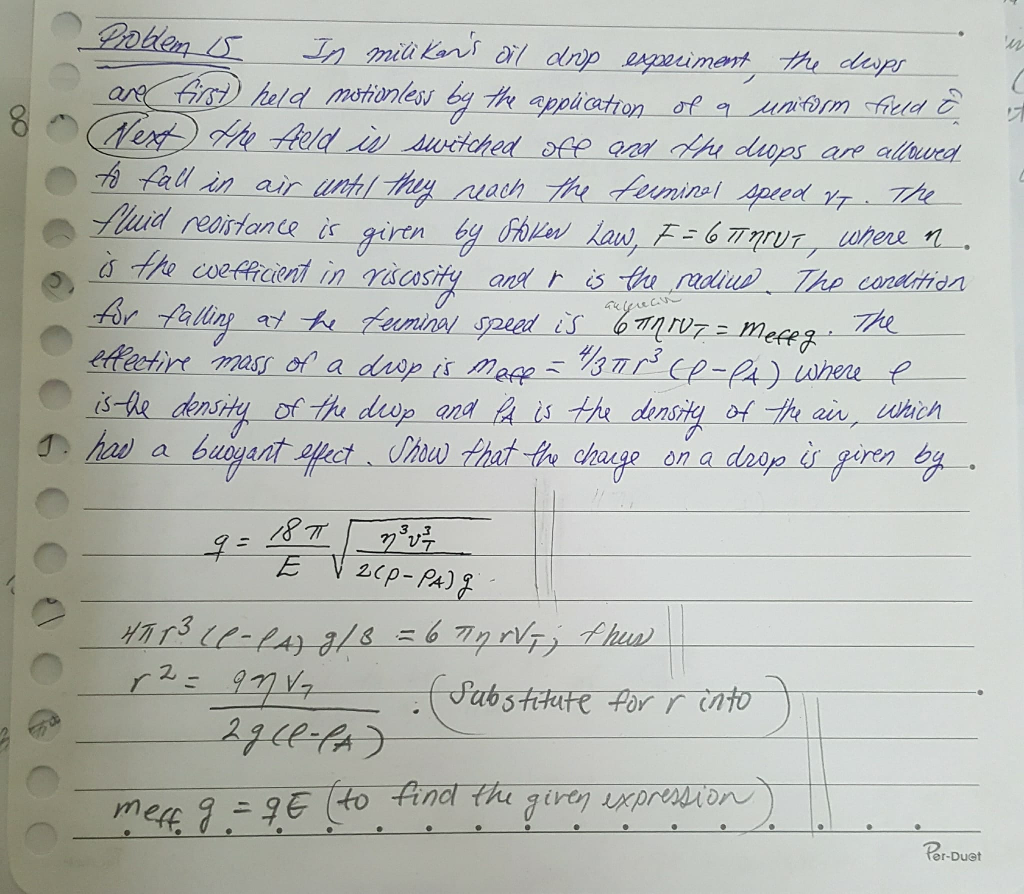 Problem 15 In milikan's oil drop experiment, the drops
are first held motionless by the application of a uniform field
8
Next the field is switched off and the drops are allowed
to fall in air until they reach the terminal speed vT. The
fluid resistance is given by Stokes Law, F = 6πηrυT, where η
is the coefficient in viscosity and r is the radius. The condition
for falling at the terminal speed is 6πηrυT = meff g. The
effective mass of a drop is meff = 4/3 πr³ (ρ-ρA) where ρ
is the density of the drop and ρA is the density of the air, which
has a buoyant effect. Show that the charge on a drop is given by
q = 18π/E √(η³υT³/2(ρ-ρA)g)
4πr³(ρ-ρA) g/3 = 6πηrVT; thus
r² = 9ηVT/2g(ρ-ρA). (Substitute for r into)
meff g = qE (to find the given expression)
Per-Duet